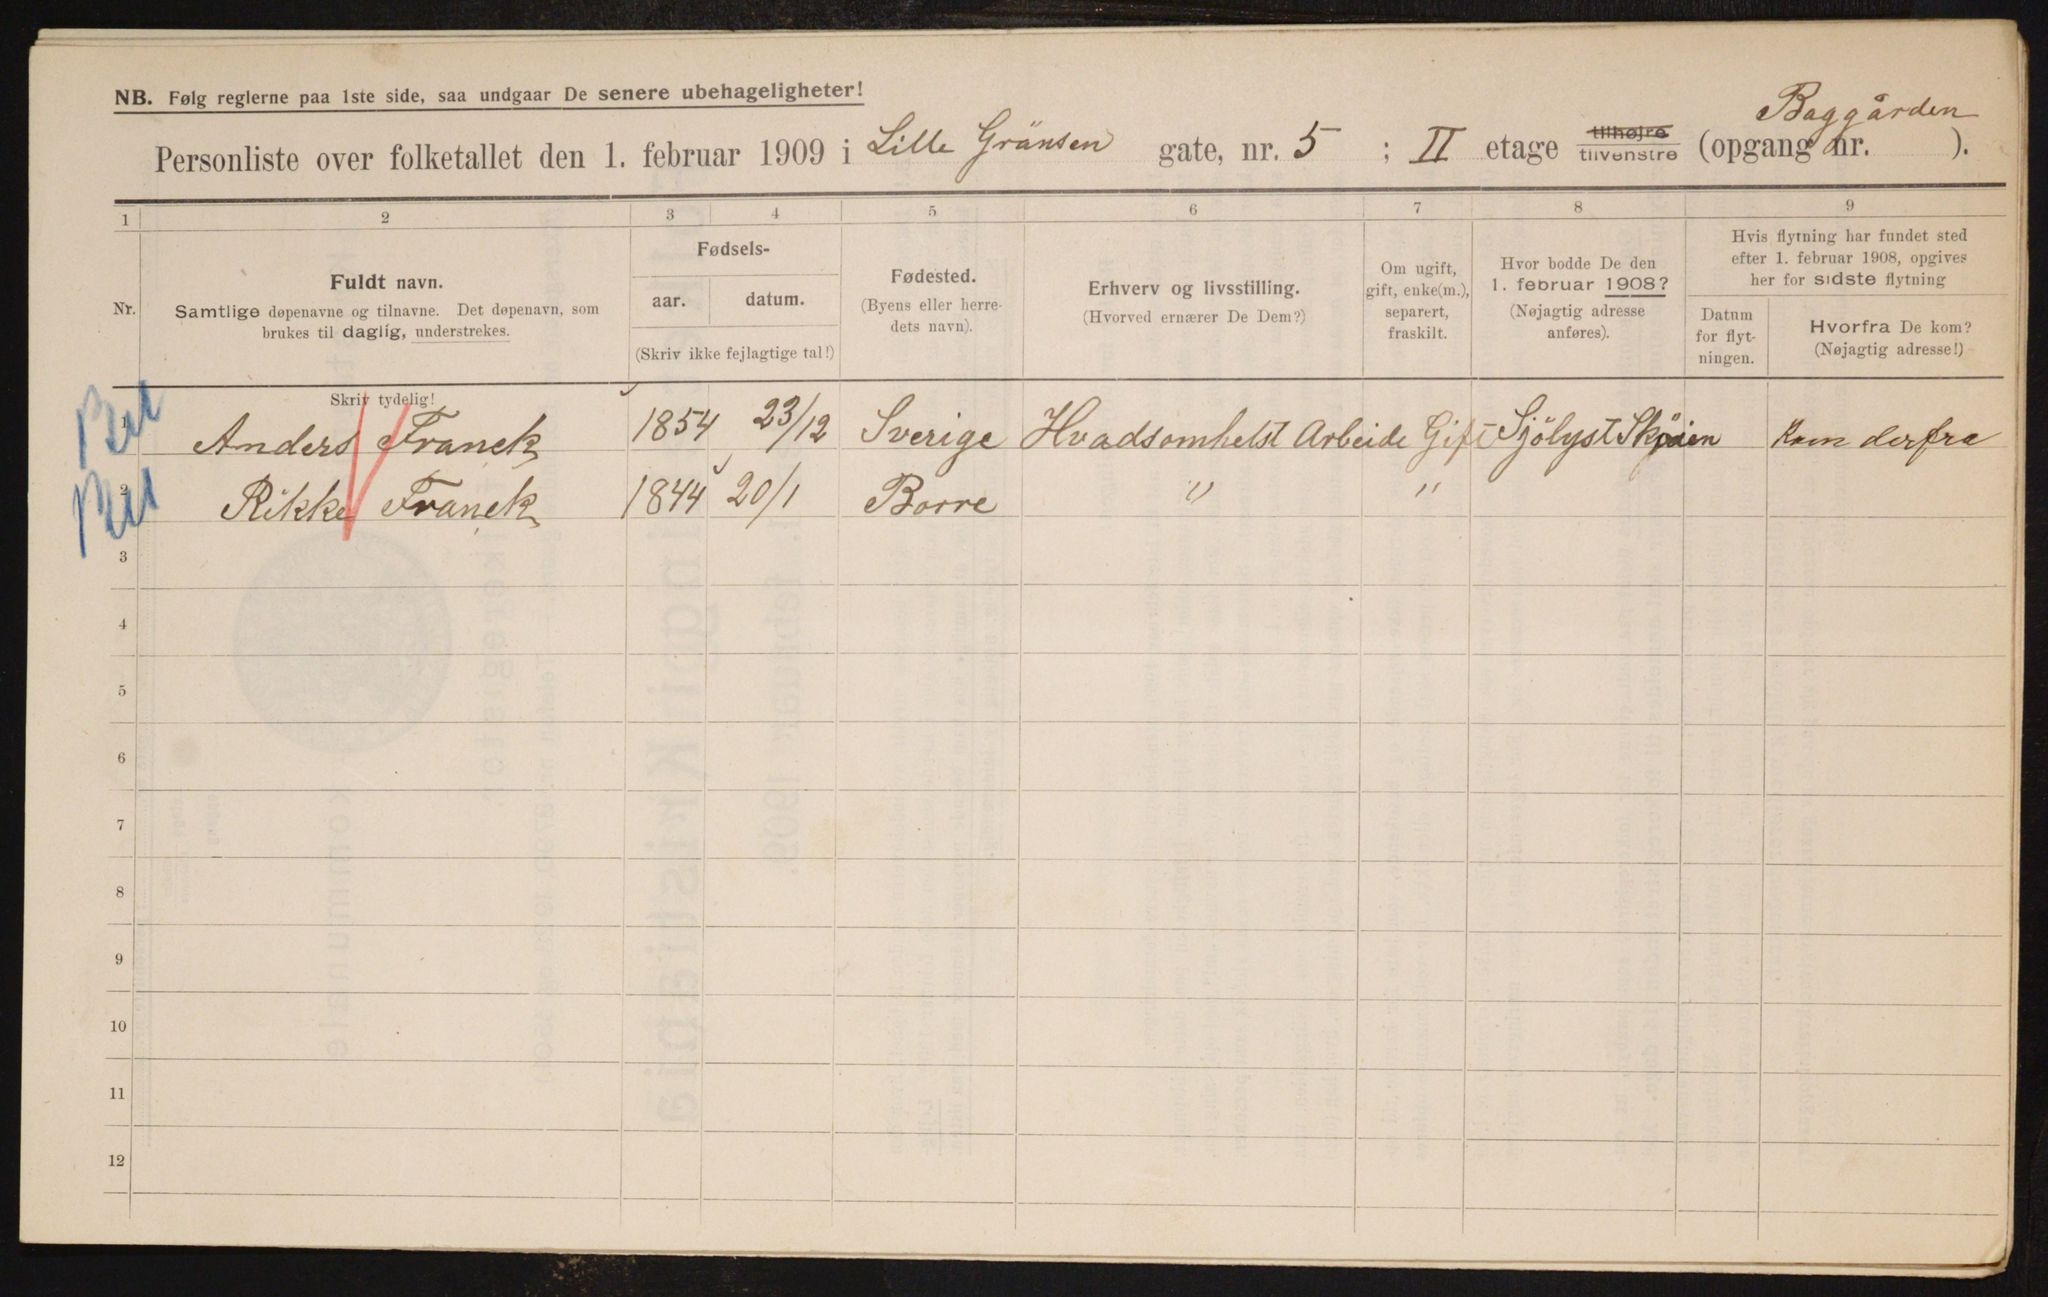 NB. Følg reglerne paa 1ste side, saa undgaar De senere ubehageligheter!
Baggården
Personliste over folketallet den 1. februar 1909 i Lille Gränsen gate, nr. 5 ; II etage tilhøjre tilvenstre (opgang nr. ).
1 2 3 4 5 6 7 8 9
Nr.
Fuldt navn.
Samtlige døpenavne og tilnavne. Det døpenavn, som
brukes til daglig, understrekes.
Skriv tydelig!
Fødsels-
aar. datum.
(Skriv ikke fejlagtige tal!)
Fødested.
(Byens eller herre-
dets navn).
Erhverv og livsstilling.
(Hvorved ernærer De Dem?)
Om ugift,
gift, enke(m.),
separert,
fraskilt.
Hvor bodde De den
1. februar 1908?
(Nøjagtig adresse
anføres).
Hvis flytning har fundet sted
efter 1. februar 1908, opgives
her for sidste flytning
Datum
for flyt-
ningen.
Hvorfra De kom?
(Nøjagtig adresse!)
1 Anders Franck 1854 23/12 Sverige Hvadsomhelst Arbeide Gift Sjölyst Skøien Kom derfra
2 Rikke Franck 1844 20/1 Borre " "
3
4
5
6
7
8
9
10
11
12